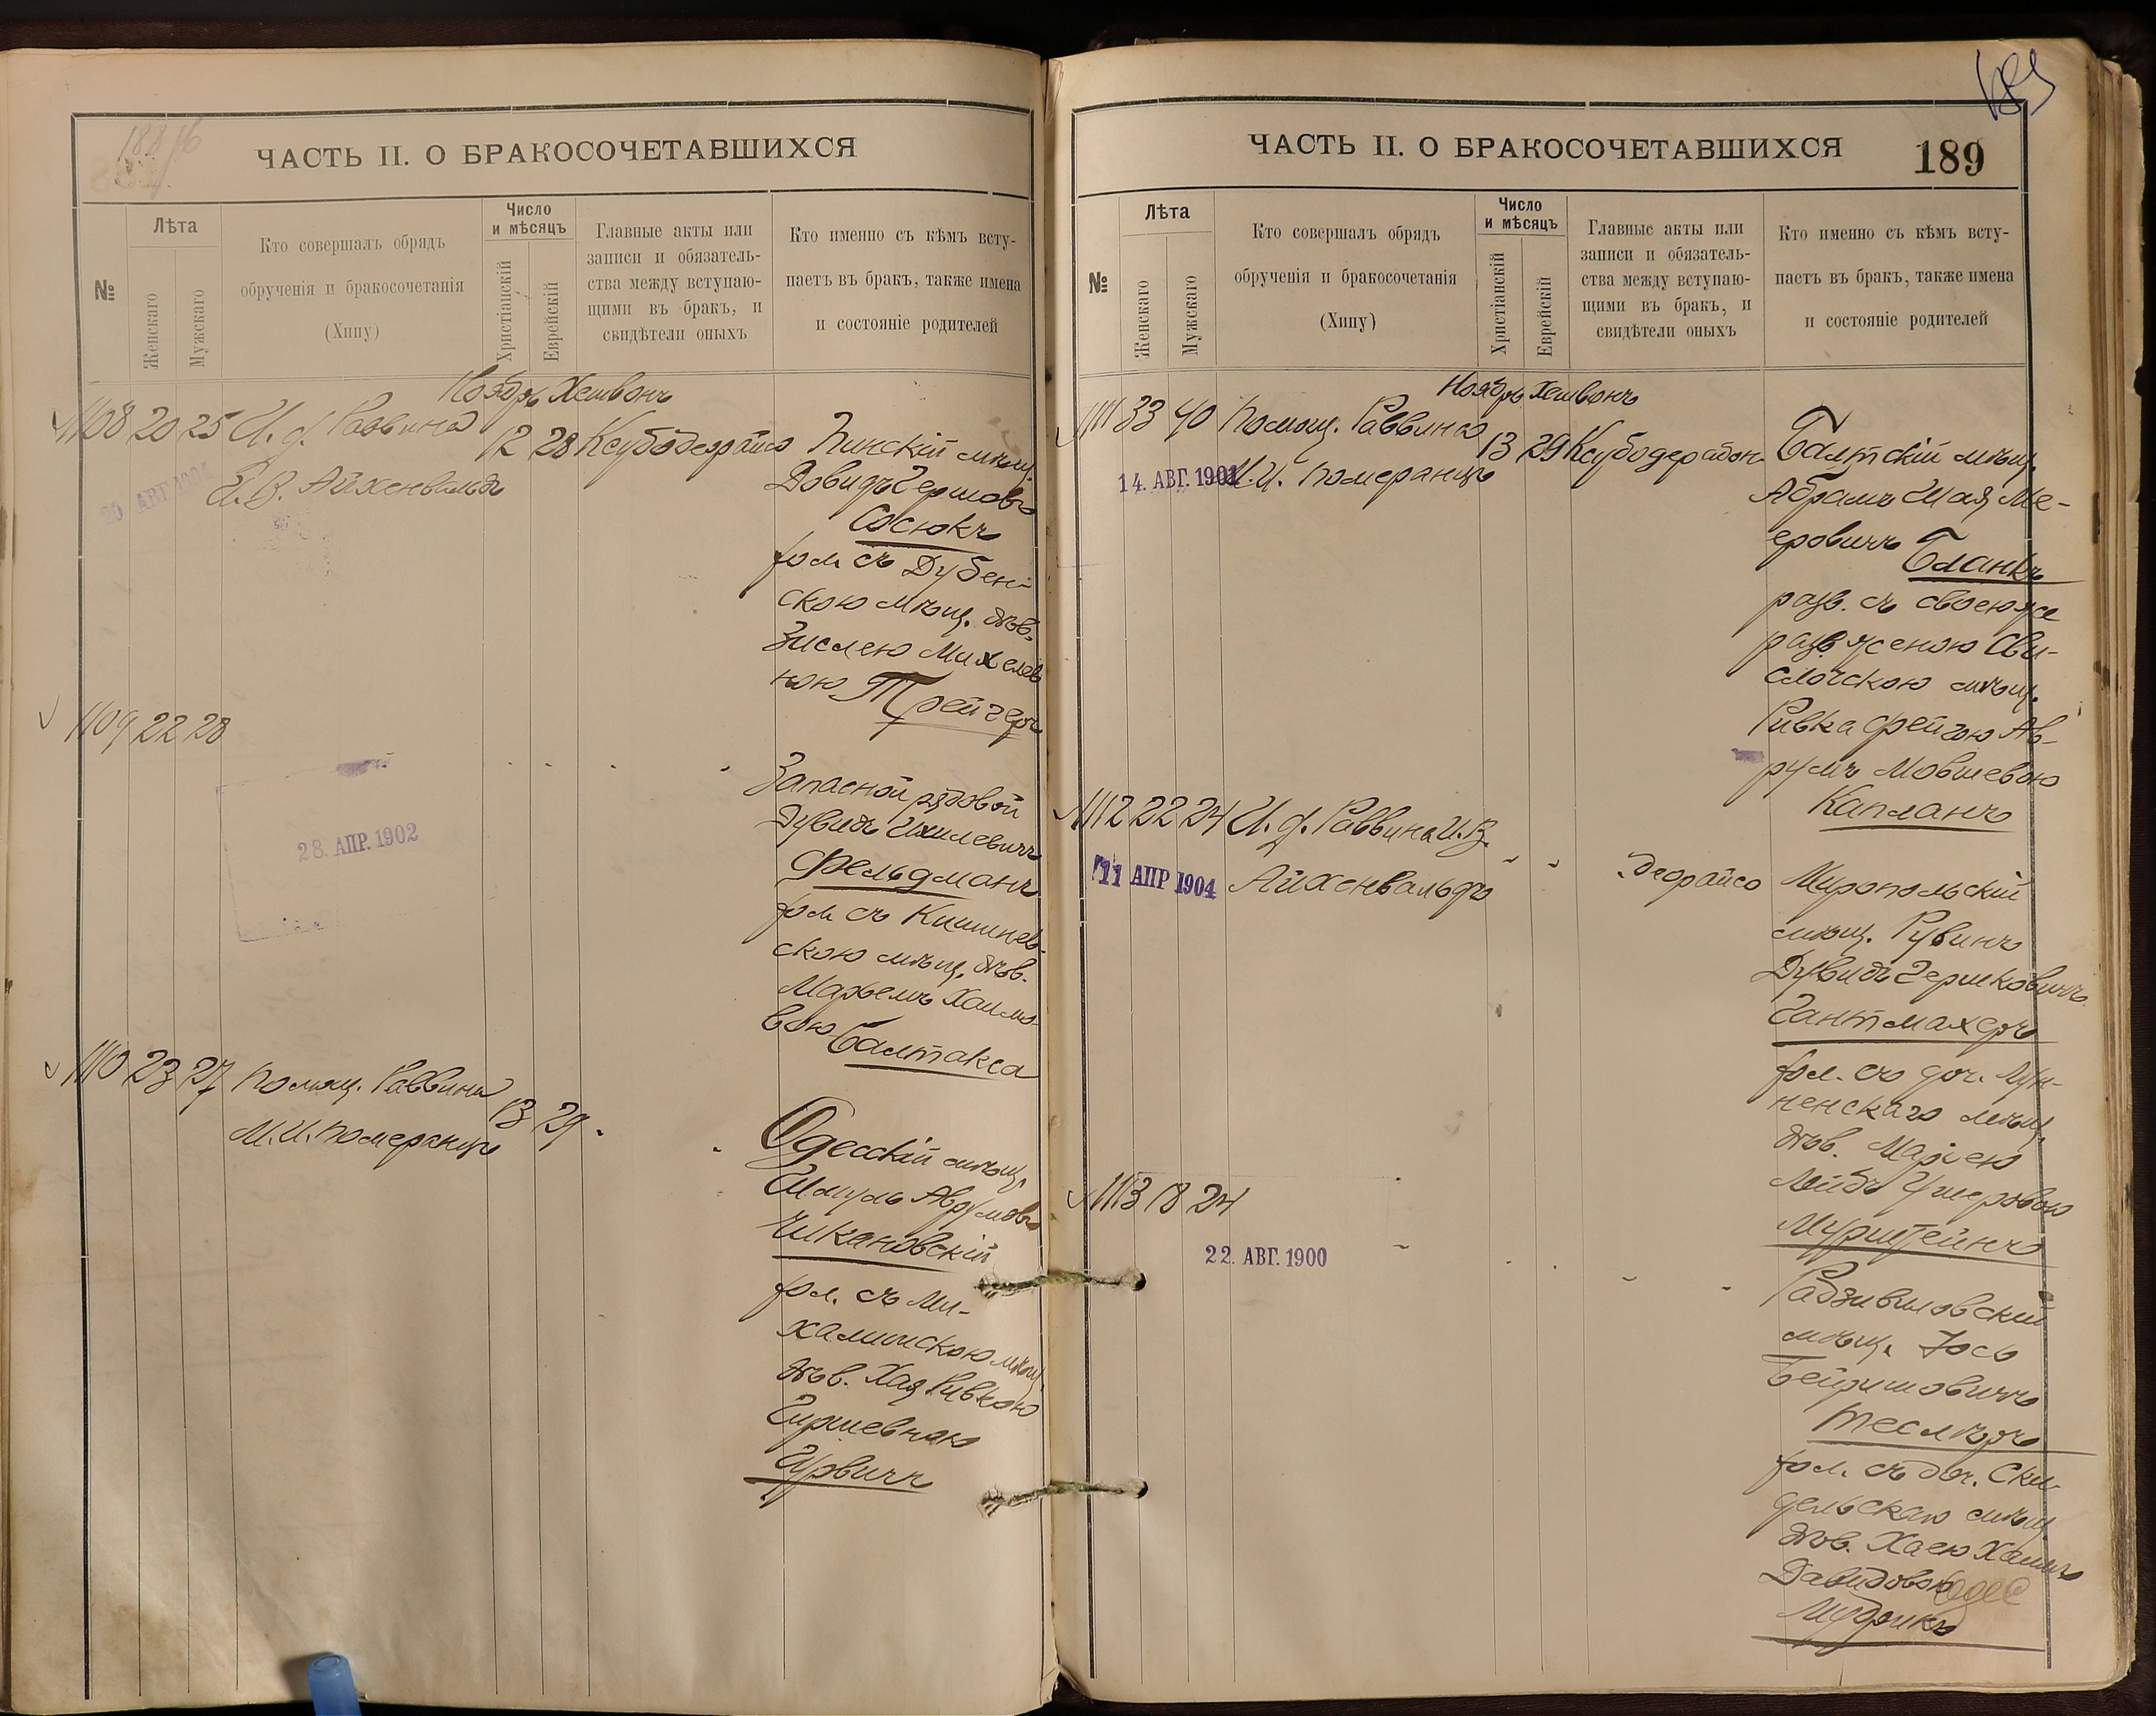 ЧАСТЬ II. О БРАКОСОЧЕТАВШИХСЯ
№
Лѣта
Женскаго
Мужскаго
Кто совершалъ обрядъ
обрученія и бракосочетанія
(Хипу)
Число
и мѣсяцъ
Христіанскій
Еврейскій
Главные акты или
записи и обязатель-
ства между вступаю-
щими въ бракъ, и
свидѣтели оныхъ
Кто именно съ кѣмъ всту-
паетъ въ бракъ, также имена
и состояніе родителей
Ноябрь Хешвонъ
1108 20 25 И. д. Раввина
И. В. Айхенвальдъ
12 28 Ксубодеорайсо
Пинскій мѣщ.
Довидъ Гершовъ
Сосюкъ
хол. съ Дубен-
скою мѣщ. дѣв.
Зислею Михелев
ною Трейгеръ
1109 22 28
28. АПР. 1902
Запасной рядовой
Дувидъ Ихилевичъ
Фельдманъ
хол. съ Кишинев-
скою мѣщ. дѣв.
Марьемъ Хаимо-
вою Балтакса
1110 23 27 Помощ. Раввина
М. И. Померанцъ
13 29
Одесскій мѣщ.
Шмуль Аврумовъ
Чикановскій
хол. съ Ми-
халишскою мѣщ.
дѣв. Хая Ривкою
Гиршевною
Гурвичъ
ЧАСТЬ II. О БРАКОСОЧЕТАВШИХСЯ
189
№
Лѣта
Женскаго
Мужскаго
Кто совершалъ обрядъ
обрученія и бракосочетанія
(Хипу)
Число
и мѣсяцъ
Христіанскій
Еврейскій
Главные акты или
записи и обязатель-
ства между вступаю-
щими въ бракъ, и
свидѣтели оныхъ
Кто именно съ кѣмъ всту-
паетъ въ бракъ, также имена
и состояніе родителей
Ноябрь Хешвонъ
1111 33 40 Помощ. Раввина
14. АВГ. 1901
М. И. Померанцъ
13 29
Балтскій мѣщ.
Абрамъ Шая Ме-
еровичъ Бланкъ
разв. съ своею же
разв. женою Сви-
слочскою мѣщ.
Ривка Фейгою Ав-
румъ Мовшевою
Капланъ
1112 22 24 И. д. Раввина И. В.
11 АПР 1904
Айхенвальдъ
деорайсо
Миропольскій
мѣщ. Рувинъ
Дувидъ Гершковичъ
Гантмахеръ
хол. съ доч. Лун-
ненскаго мѣщ.
дѣв. Маріею
Лейбъ Ушеровою
Мурштейнъ
1113 18 24
22. АВГ. 1900
Радзивиловскій
мѣщ. Іось
Бейришовичъ
Теслеръ
хол. съ доч. Ски-
дельскаго мѣщ.
дѣв. Хаею Хаимъ
Давидовою
Мудрикъ